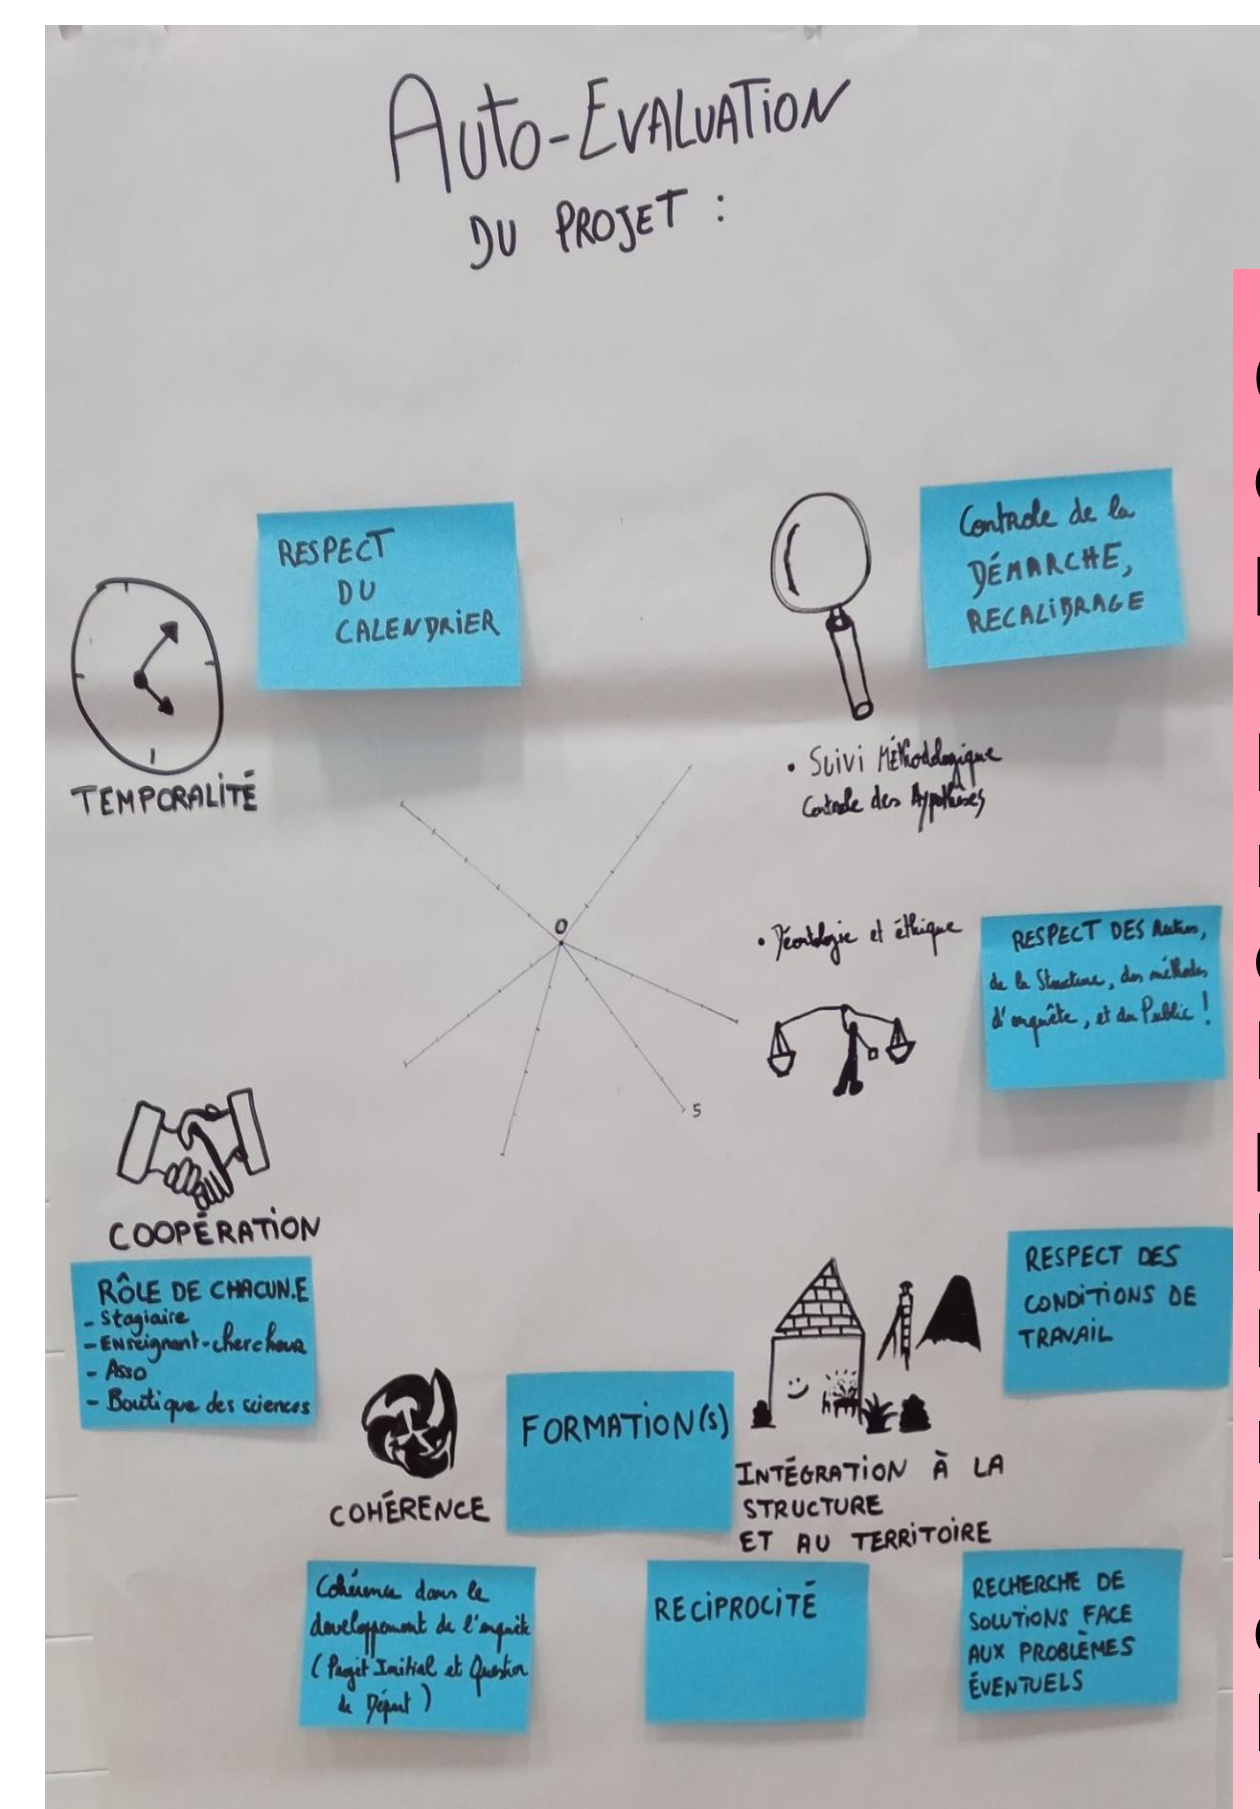 AUTO-EVALUATION
DU PROJET :
RESPECT
DU
CALENDRIER
Controle de la
DÉMARCHE,
RECALIBRAGE
TEMPORALITÉ
• Suivi Méthodologique
Controle des Hypothèses
0
• Déontologie et éthique
RESPECT DES
de la Structure, des méthodes
d'enquête, et du Public !
5
COOPÉRATION
RÔLE DE CHACUN.E
- Stagiaire
- Enseignant-chercheur
- Asso
- Boutique des sciences
COHÉRENCE
FORMATION(S)
INTÉGRATION À LA
STRUCTURE
ET AU TERRITOIRE
RESPECT DES
CONDITIONS DE
TRAVAIL
Cohérence dans le
developpement de l'enquête
(Projet Initial et Question
de Départ)
RECIPROCITÉ
RECHERCHE DE
SOLUTIONS FACE
AUX PROBLÈMES
ÉVENTUELS